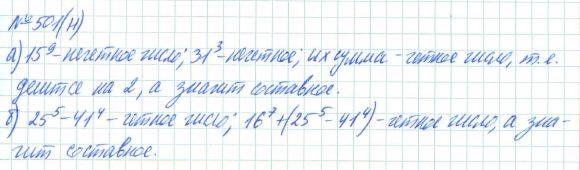 № 501(н)
а) 15⁹ - нечетное число; 31³ - нечетное; их сумма - четное число, т.е.
делится на 2, а значит составное.
б) 25⁵ - 41⁴ - четное число; 16⁷ + (25⁵ - 41⁴) - четное число, а зна-
чит составное.